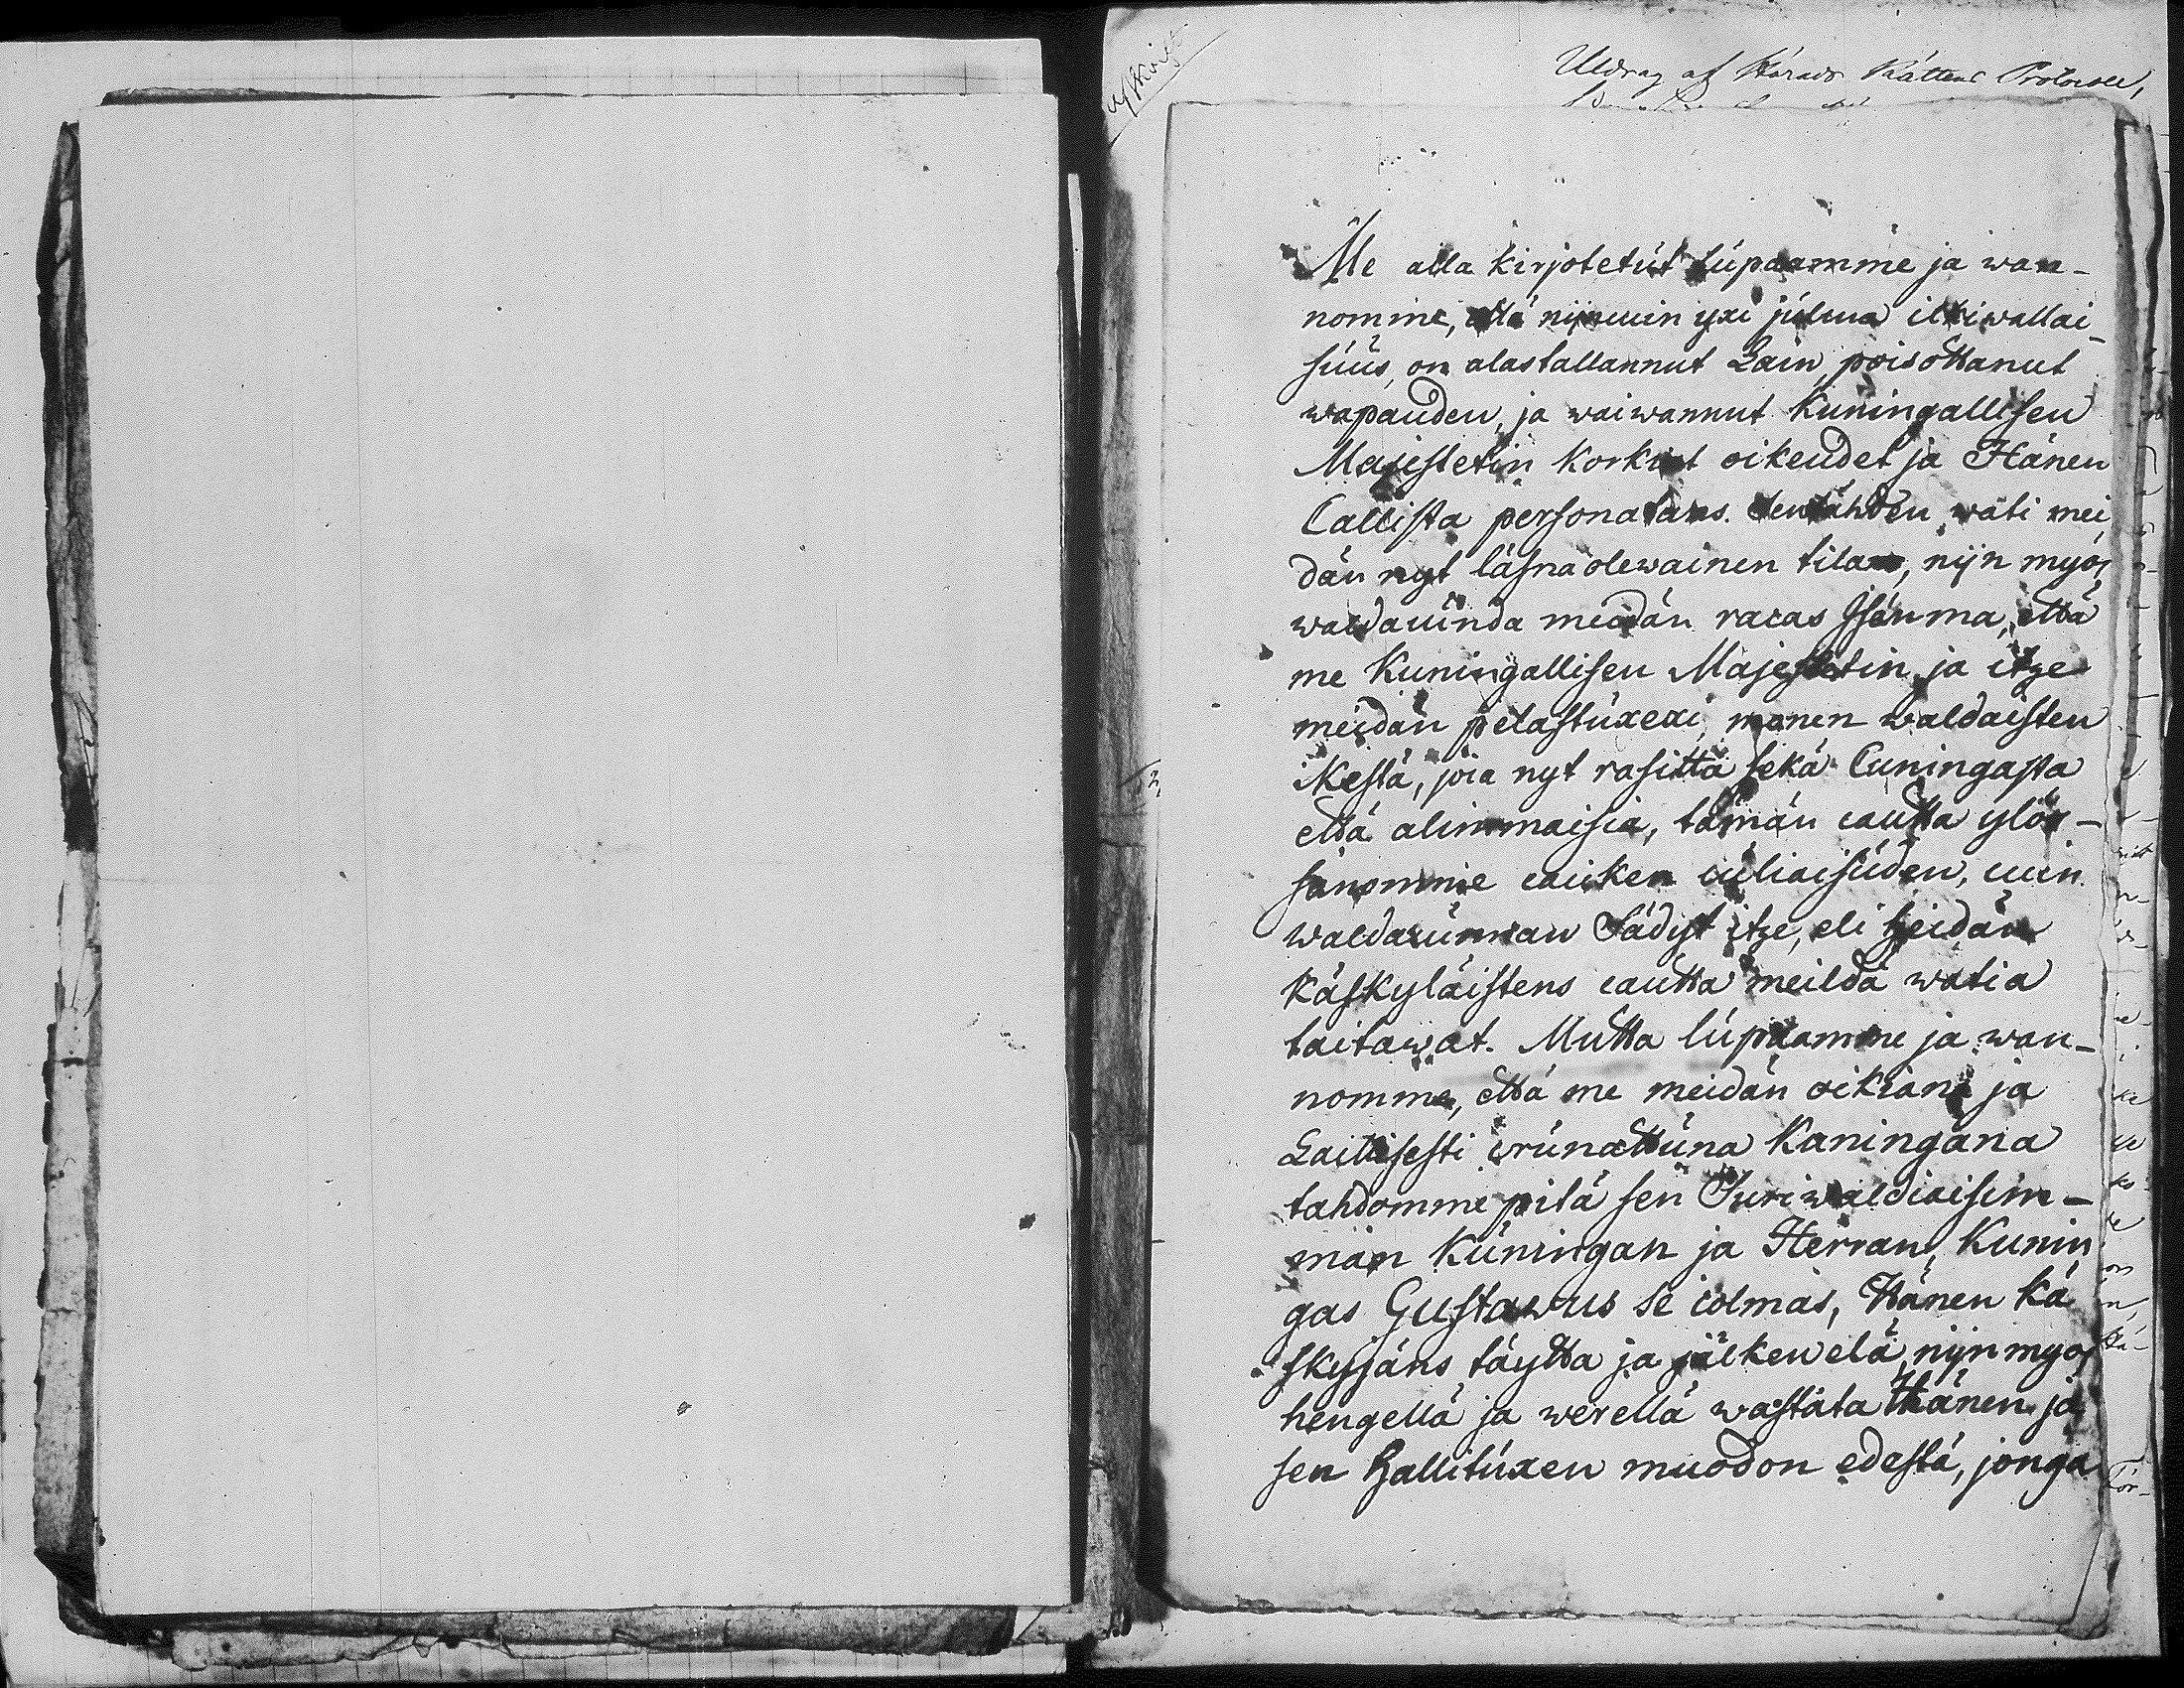 Afskrift
Utdrag af Härads Rättens Protocoll,
Me alla kirjotetut lupaamme ja wan-
nomme, että nijncuin yxi julma ilkiwallai-
suus, on alastallannut Lain, poisottanut
wapauden, ja waiwannut Kuningallisen
Majestetin korkiat oikeudet ja Hänen
Callista personatans. Sentähden, wati mei
dän nyt läsnäolewainen tilam, nijn myös
waldacunda meidän racas Isänmä, että
me Kuningallisen Majestetin ja itze
meidän pelastuxexi, monen waldaisten
ikestä, joca nyt rasitta sekä Cuningasta
että alimmaisia, tämän cautta ylös-
sanomme caicken cuuliaisuden, cuin
waldacunnan Säädyt itze, eli heidän
käskyläistens cautta meildä watia
taitawat. Mutta lupaamme ja wan-
nomme, että me meidän oikiana ja
Laillisesti cruunattuna Kuningana
tahdomme pitä sen Suuriwaldiaisim-
man Kuningan ja Herran, Kunin
gas Gustawus se colmas, Hänen kä
skyjäns täyttä ja jälken elä, nijn myös
hengellä ja werellä wastata Hänen ja
sen Hallituxen muodon edestä, jonga